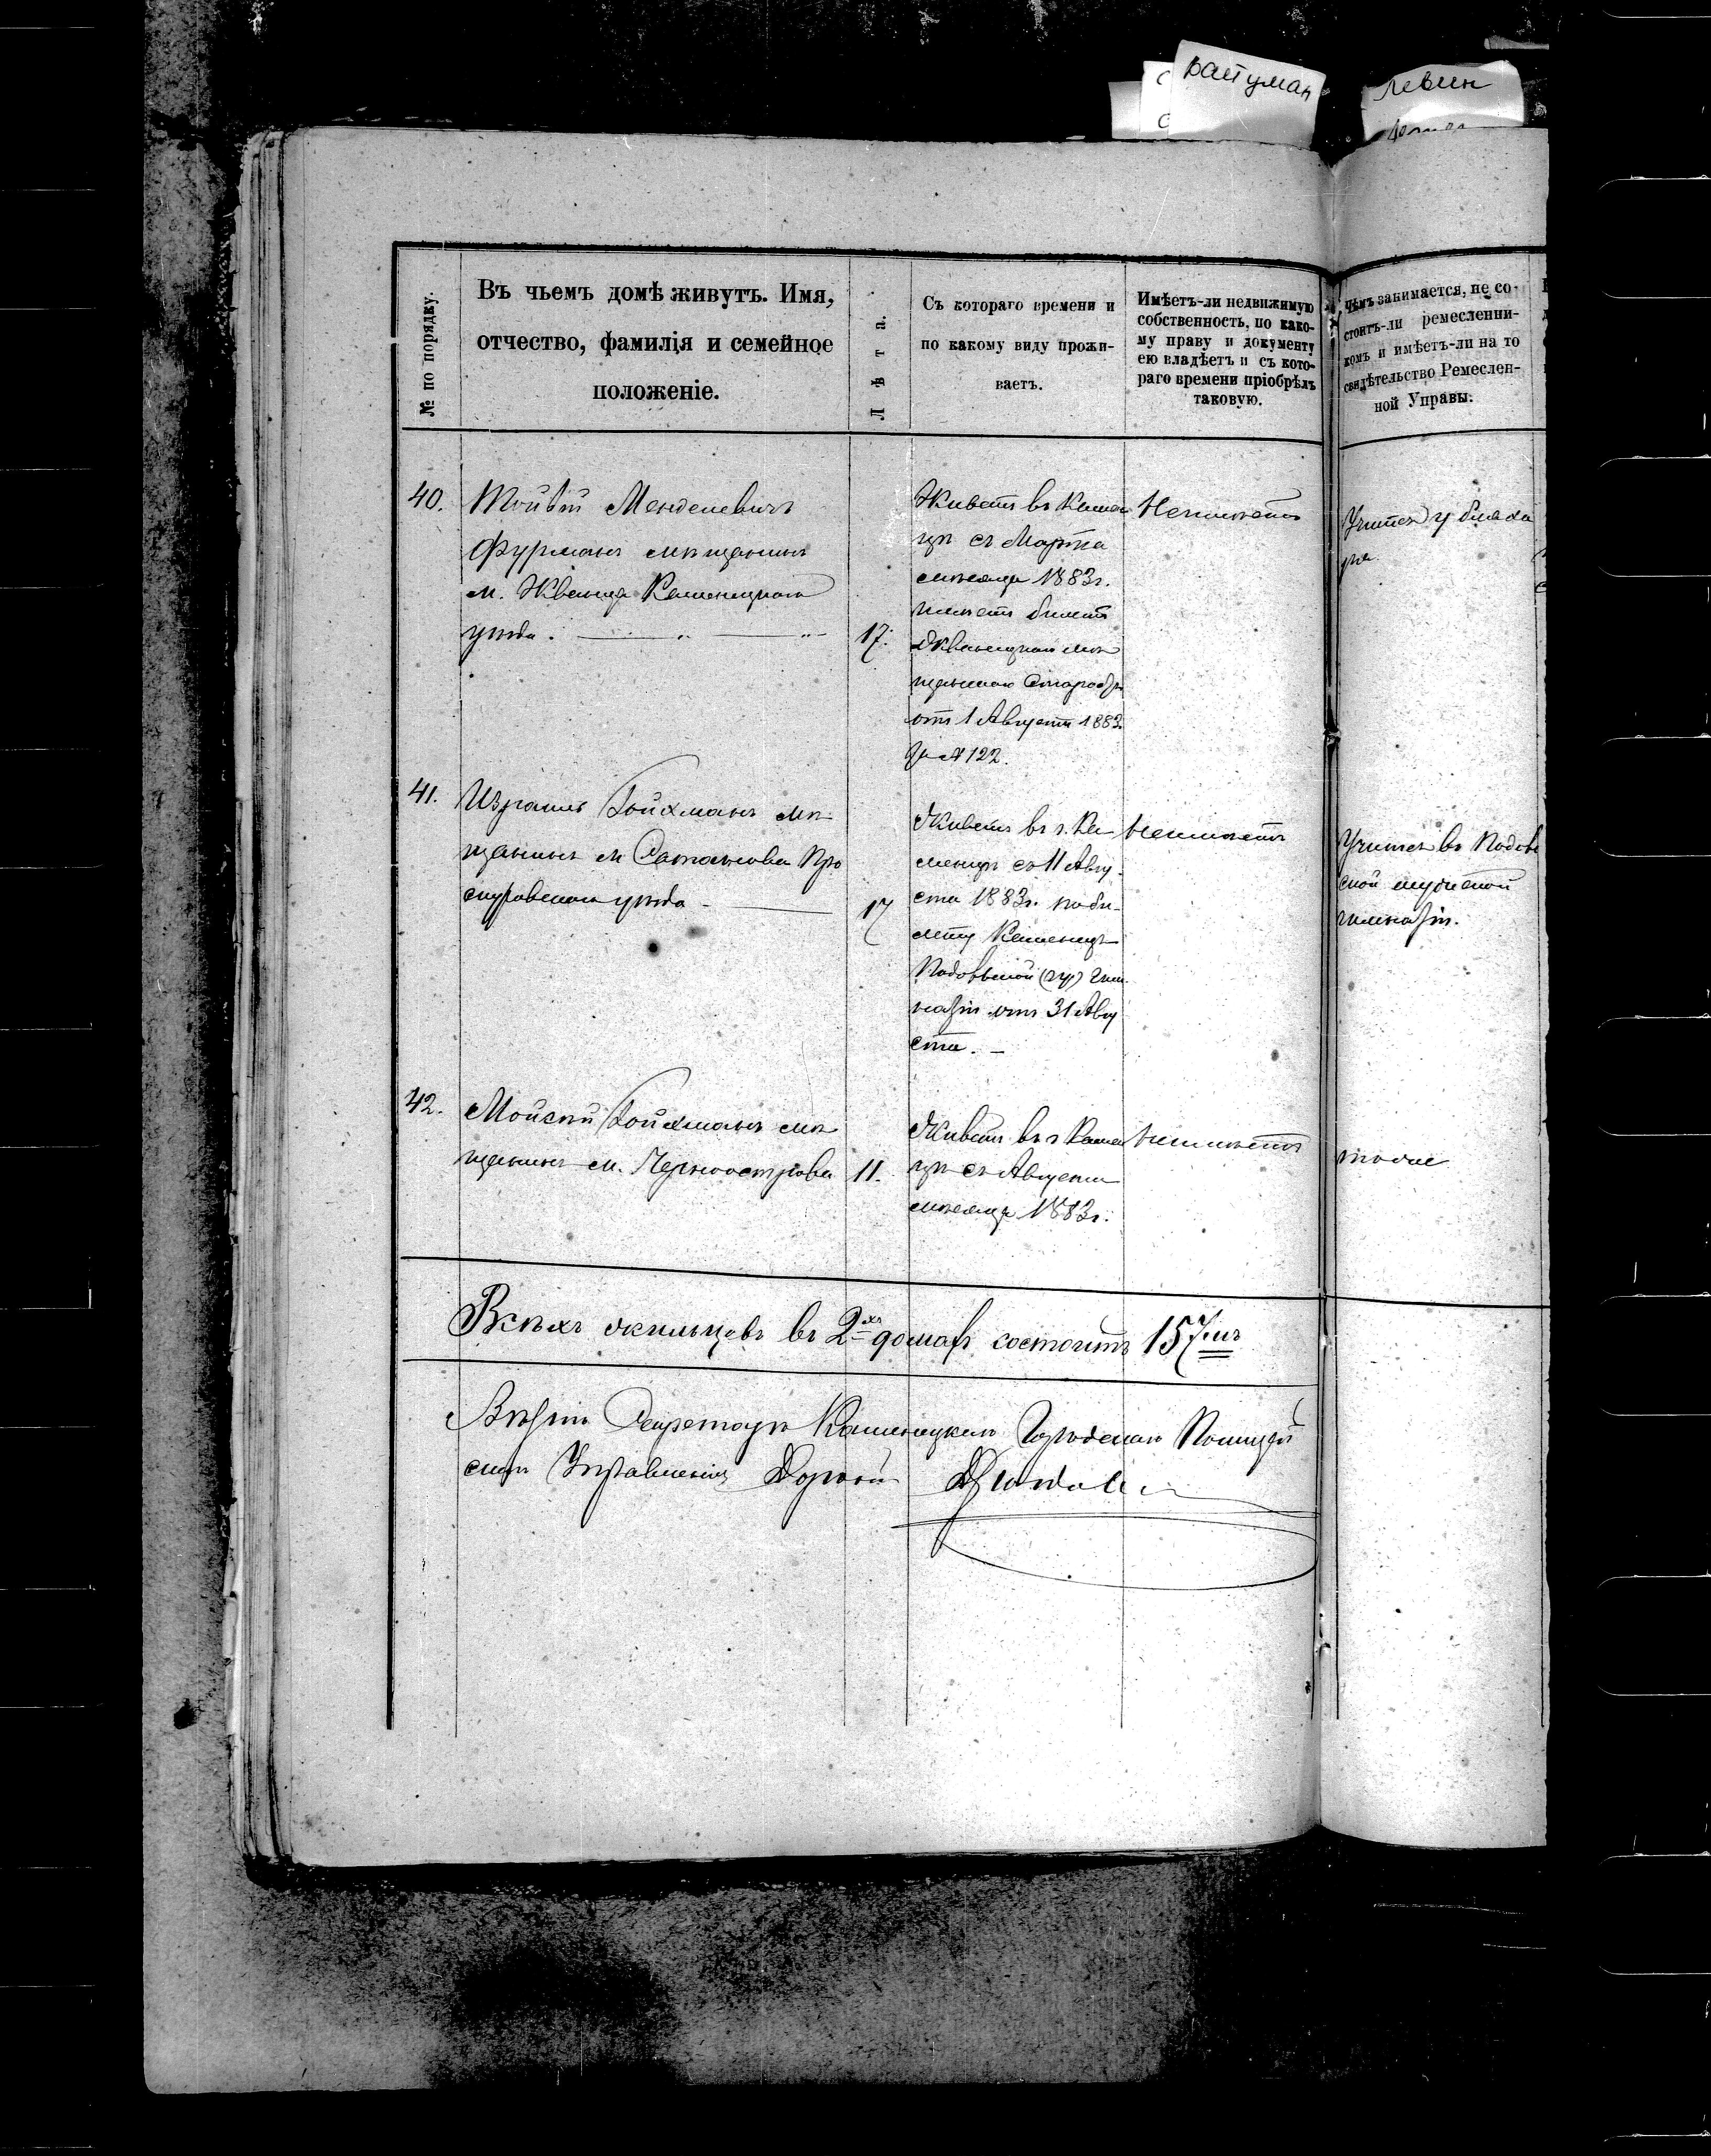 Вайуман
Левин
№ по порядку.
Въ чьемъ домѣ живутъ. Имя,
отчество, фамилія и семейное
положеніе.
Лѣта.
Съ котораго времени и
по какому виду прожи-
ваетъ.
Имѣетъ-ли недвижимую
собственность, по како-
му праву и документу
ею владѣетъ и съ кото-
раго времени пріобрѣлъ
таковую.
Чѣмъ занимается, не со-
стоитъ-ли ремесленни-
комъ и имѣетъ-ли на то
свидѣтельство Ремеслен-
ной Управы.
40.
Менделевичъ
Фурманъ мѣщанинъ
м. Жванца Каменецкаго
уѣзда.
17.
Живетъ въ Камен
цѣ съ Марта
мѣсяца 1883г.
имѣетъ билетъ
Жванецкаго мѣ
щанскаго Старосты
отъ 1 Августа 1883.
за № 122.
Неимѣетъ
Учится у бляха
ра
41.
Израиль Гойхманъ мѣ
щанинъ м Сатанова Про
скуровскаго уѣзда
17
Живетъ въ г. Ка
менцѣ съ 11 Авгу
ста 1883г. по би-
лету Каменецъ
Подольской гим
назіи отъ 31 Авгу
ста.
Неимѣетъ
Учится въ Подоль
ской мужской
гимназіи.
42.
Мойсей Гойхманъ мѣ
щанинъ м. Черноострова
11.
Живетъ въ г Камен
цѣ съ Августа
мѣсяца 1883г.
Неимѣетъ
тоже
Всѣхъ жильцовъ въ 2хъ домахъ состоитъ 157мъ
Секретарь Каменецкаго Городскаго Полицей
скаго Управленія